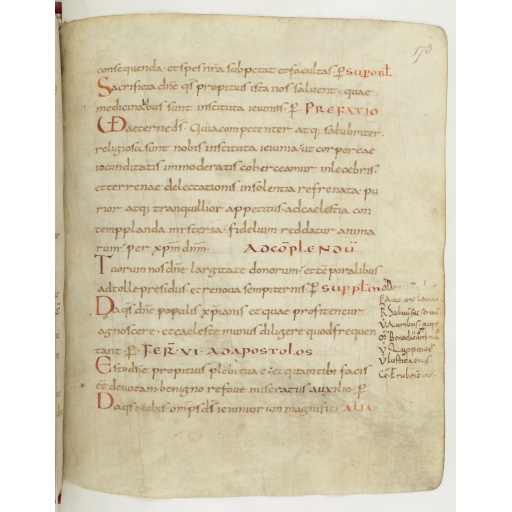 173
consequenda · et spes nr̄a subpetat et facultas · ꝑ SUP OBL̄
Sacrificia dn̄e qs̄ propitius ista nos saluent · quae
medicinalibus sunt instituta ieiuniis · ꝑ PREFATIO
VD aeterne ds̄ · Quia competenter atq; salubriter
religiosa sunt nobis instituta ieiunia · ut corporeae
iocunditatis immoderatis coherceamur inlecebris ·
et terrenae delectationis insolentia refrenata · pu
rior atq; tranquillior appetitus · ad caelestia con
templanda mysteria · fidelium reddatur anima
rum · per xpm̄ dnm̄ · AD CŌPLENDŪ
Tuorum nos dn̄e largitate donorum · et temporalibus
adtolle presidiis et renoua sempiternis · ꝑ SUP PPL̄M
Da qs̄ dn̄e populis xp̄ianis et quae profitentur
agnoscere · et caeleste munus diligere quod frequen
tant · ꝑ · FER̄ · VI · AD APOSTOLOS
Esto dn̄e propitius plebi tuae · et quam tibi facis
eē deuotam · benigno refoue miseratus auxilio · ꝑ
Da qs̄ nobis omps̄ ds̄ ieiuniorum magnifici ALIA